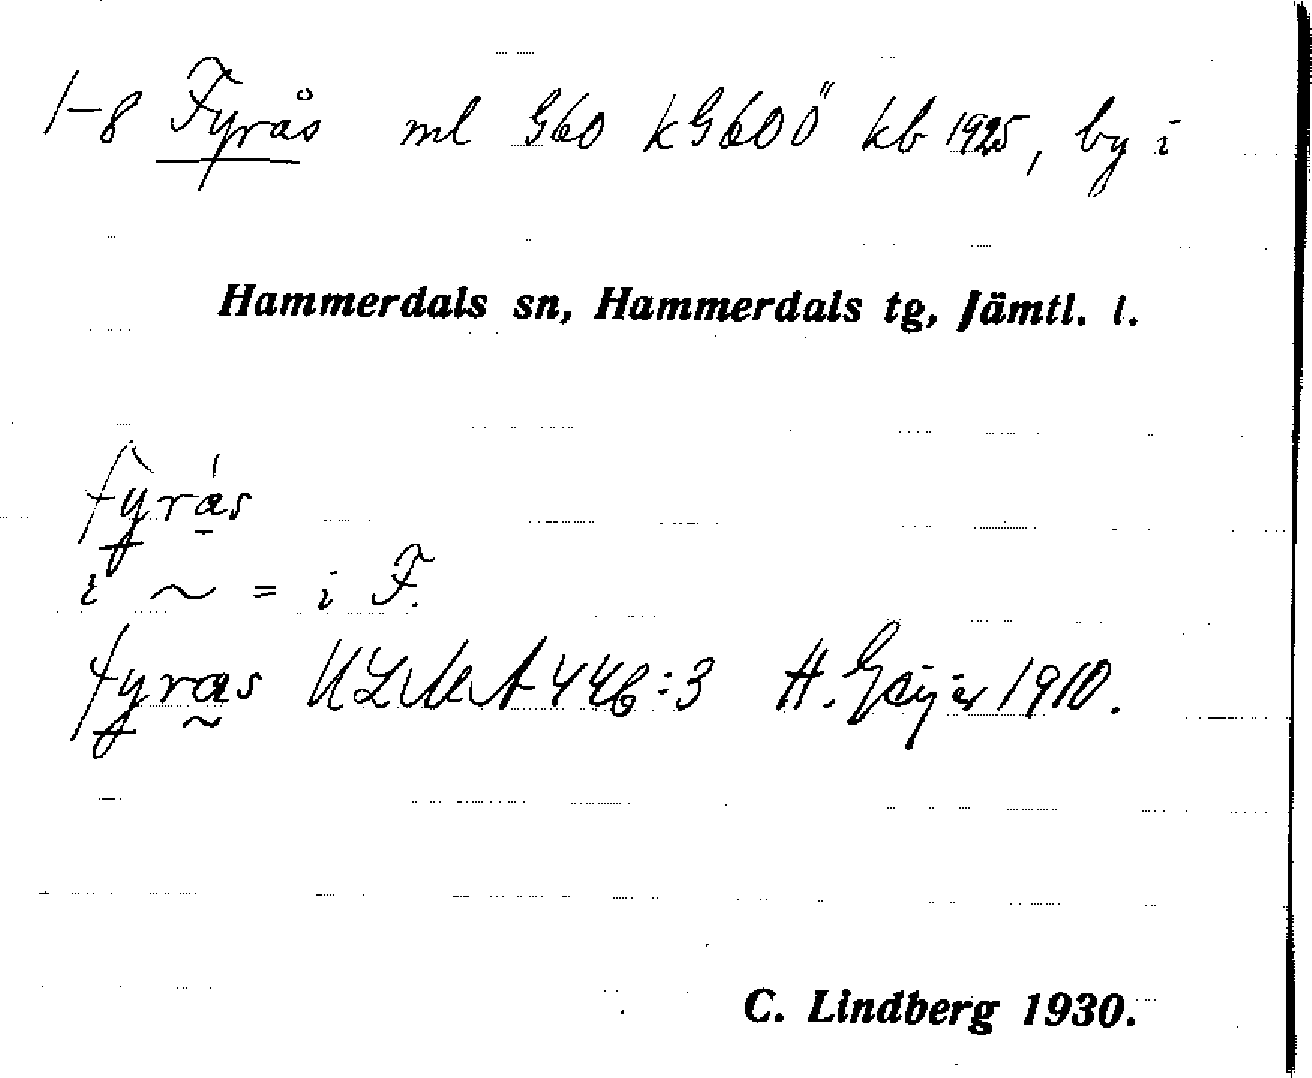 1-8 Fyrås ml G60 kG60Ö kb 1925, by i
Hammerdals sn, Hammerdals tg, Jämtl. l.
fyrás
i ~ = i F.
fyras ULMA 446:3 H. Geijer 1910.
C. Lindberg 1930.